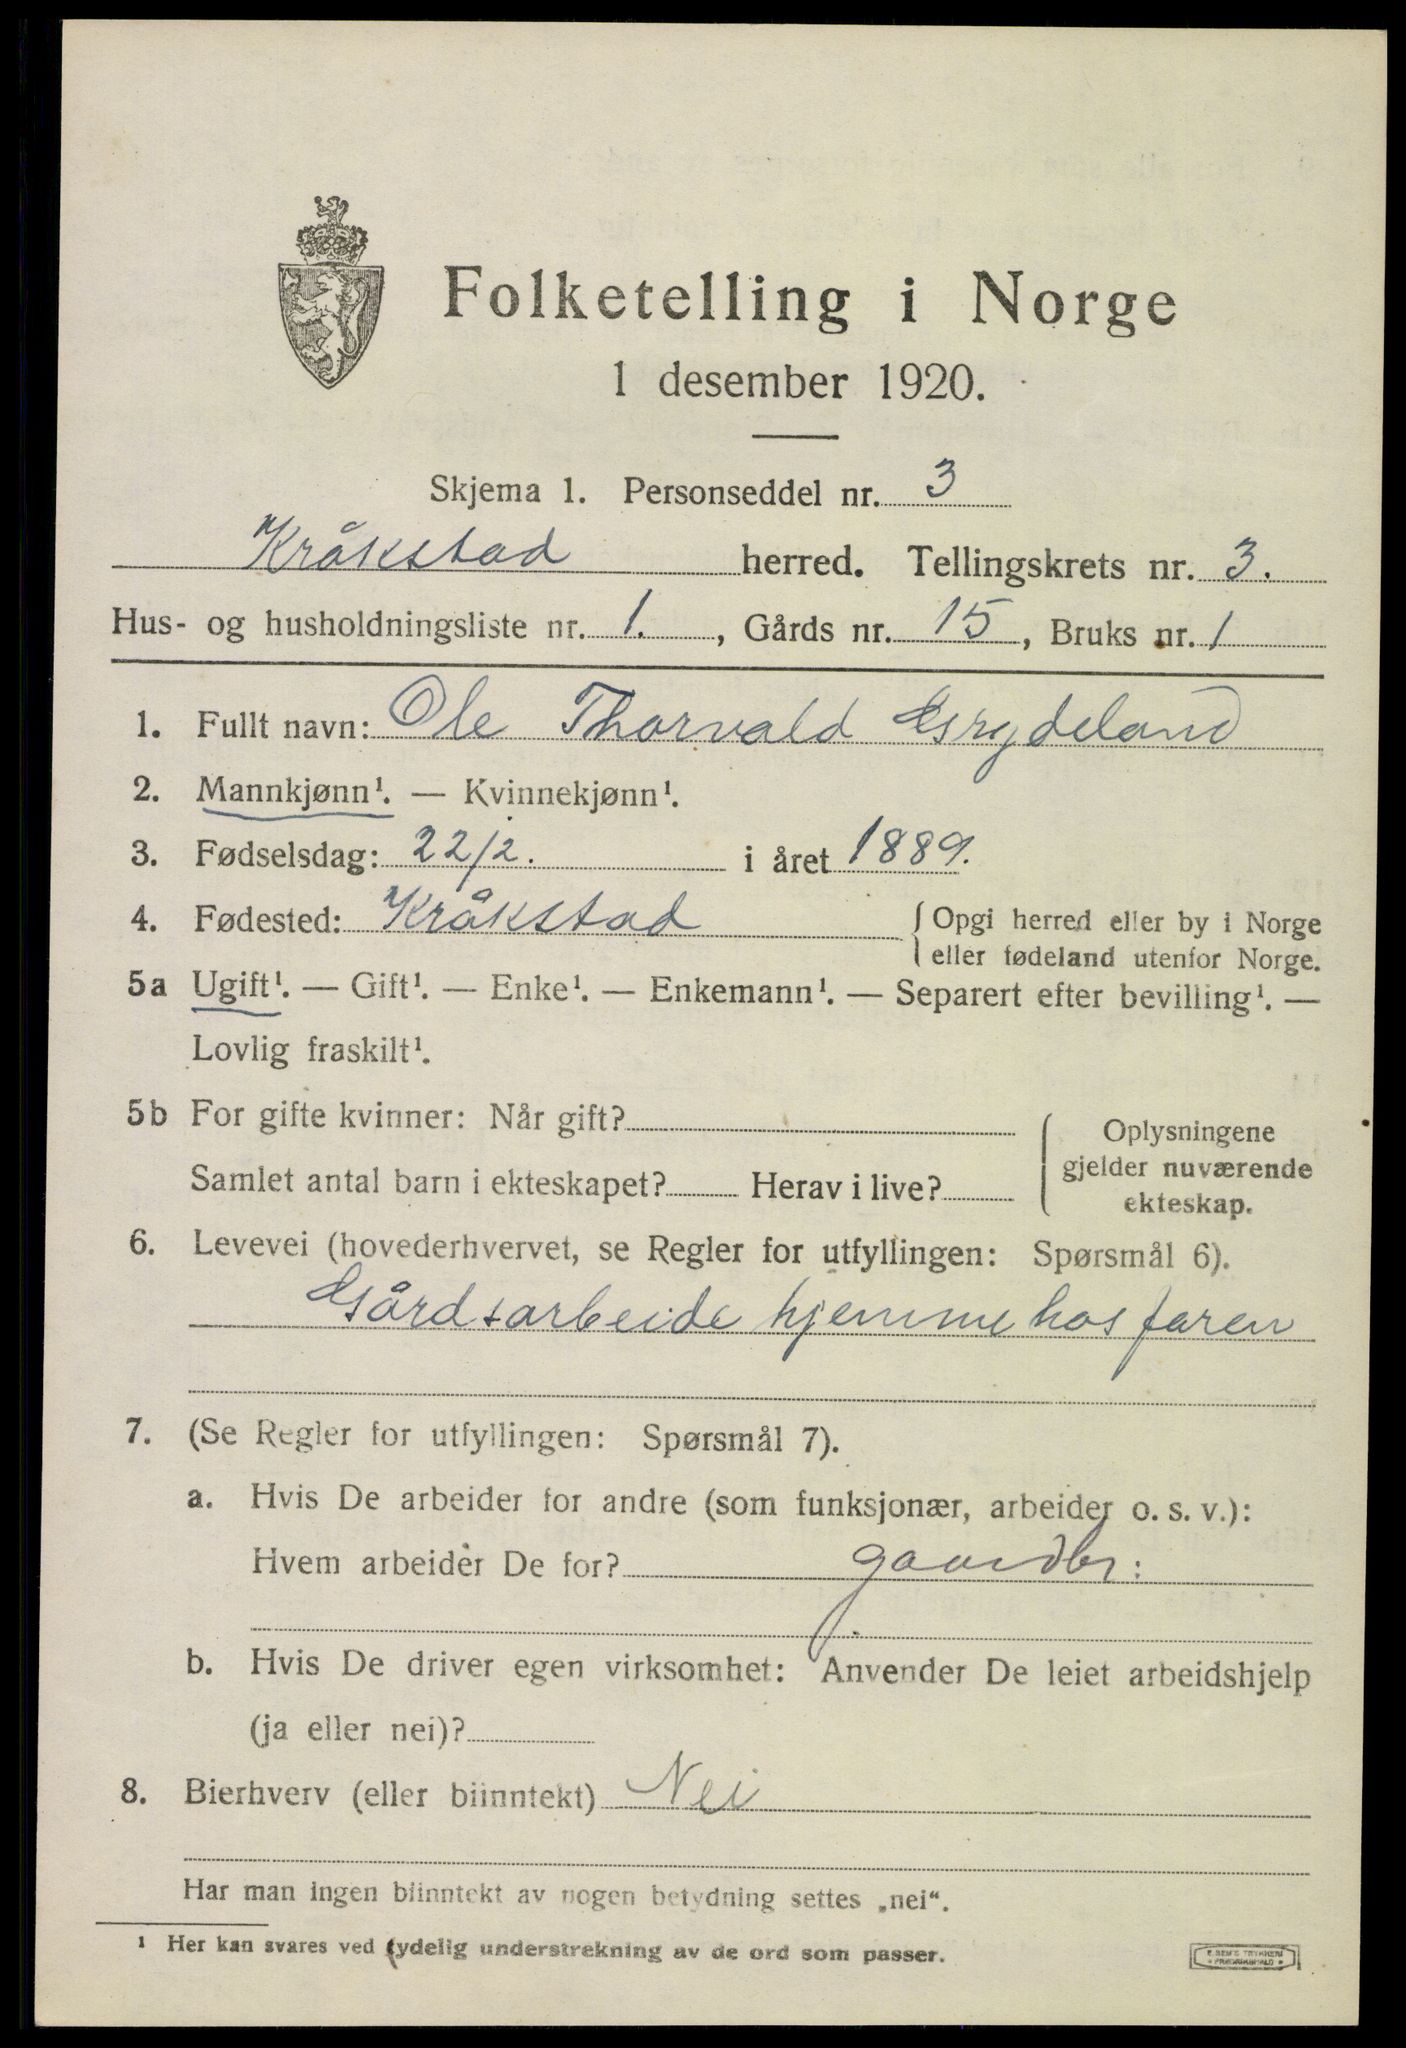 Folketelling i Norge
1 desember 1920.
Skjema 1. Personseddel nr. 3
Kråkstad herred. Tellingskrets nr. 3.
Hus- og husholdningsliste nr. 1., Gårds nr. 15, Bruks nr. 1
1. Fullt navn: Ole Thorvald Grydeland
2. Mannkjønn¹. — Kvinnekjønn¹.
3. Fødselsdag: 22/2. i året 1889.
4. Fødested: Kråkstad { Opgi herred eller by i Norge
eller fødeland utenfor Norge.
5a Ugift¹. — Gift¹. — Enke¹. — Enkemann¹. — Separert efter bevilling¹. —
Lovlig fraskilt¹.
5b For gifte kvinner: Når gift?
Samlet antal barn i ekteskapet? Herav i live?
Oplysningene
gjelder nuværende
ekteskap.
6. Levevei (hovederhvervet, se Regler for utfyllingen: Spørsmål 6).
Gårdsarbeide hjemme hos faren
7. (Se Regler for utfyllingen: Spørsmål 7).
a. Hvis De arbeider for andre (som funksjonær, arbeider o. s. v.):
Hvem arbeider De for? gaardbr:
b. Hvis De driver egen virksomhet: Anvender De leiet arbeidshjelp
(ja eller nei)?
8. Bierhverv (eller biinntekt) Nei
Har man ingen biinntekt av nogen betydning settes „nei“.
¹ Her kan svares ved tydelig understrekning av de ord som passer.